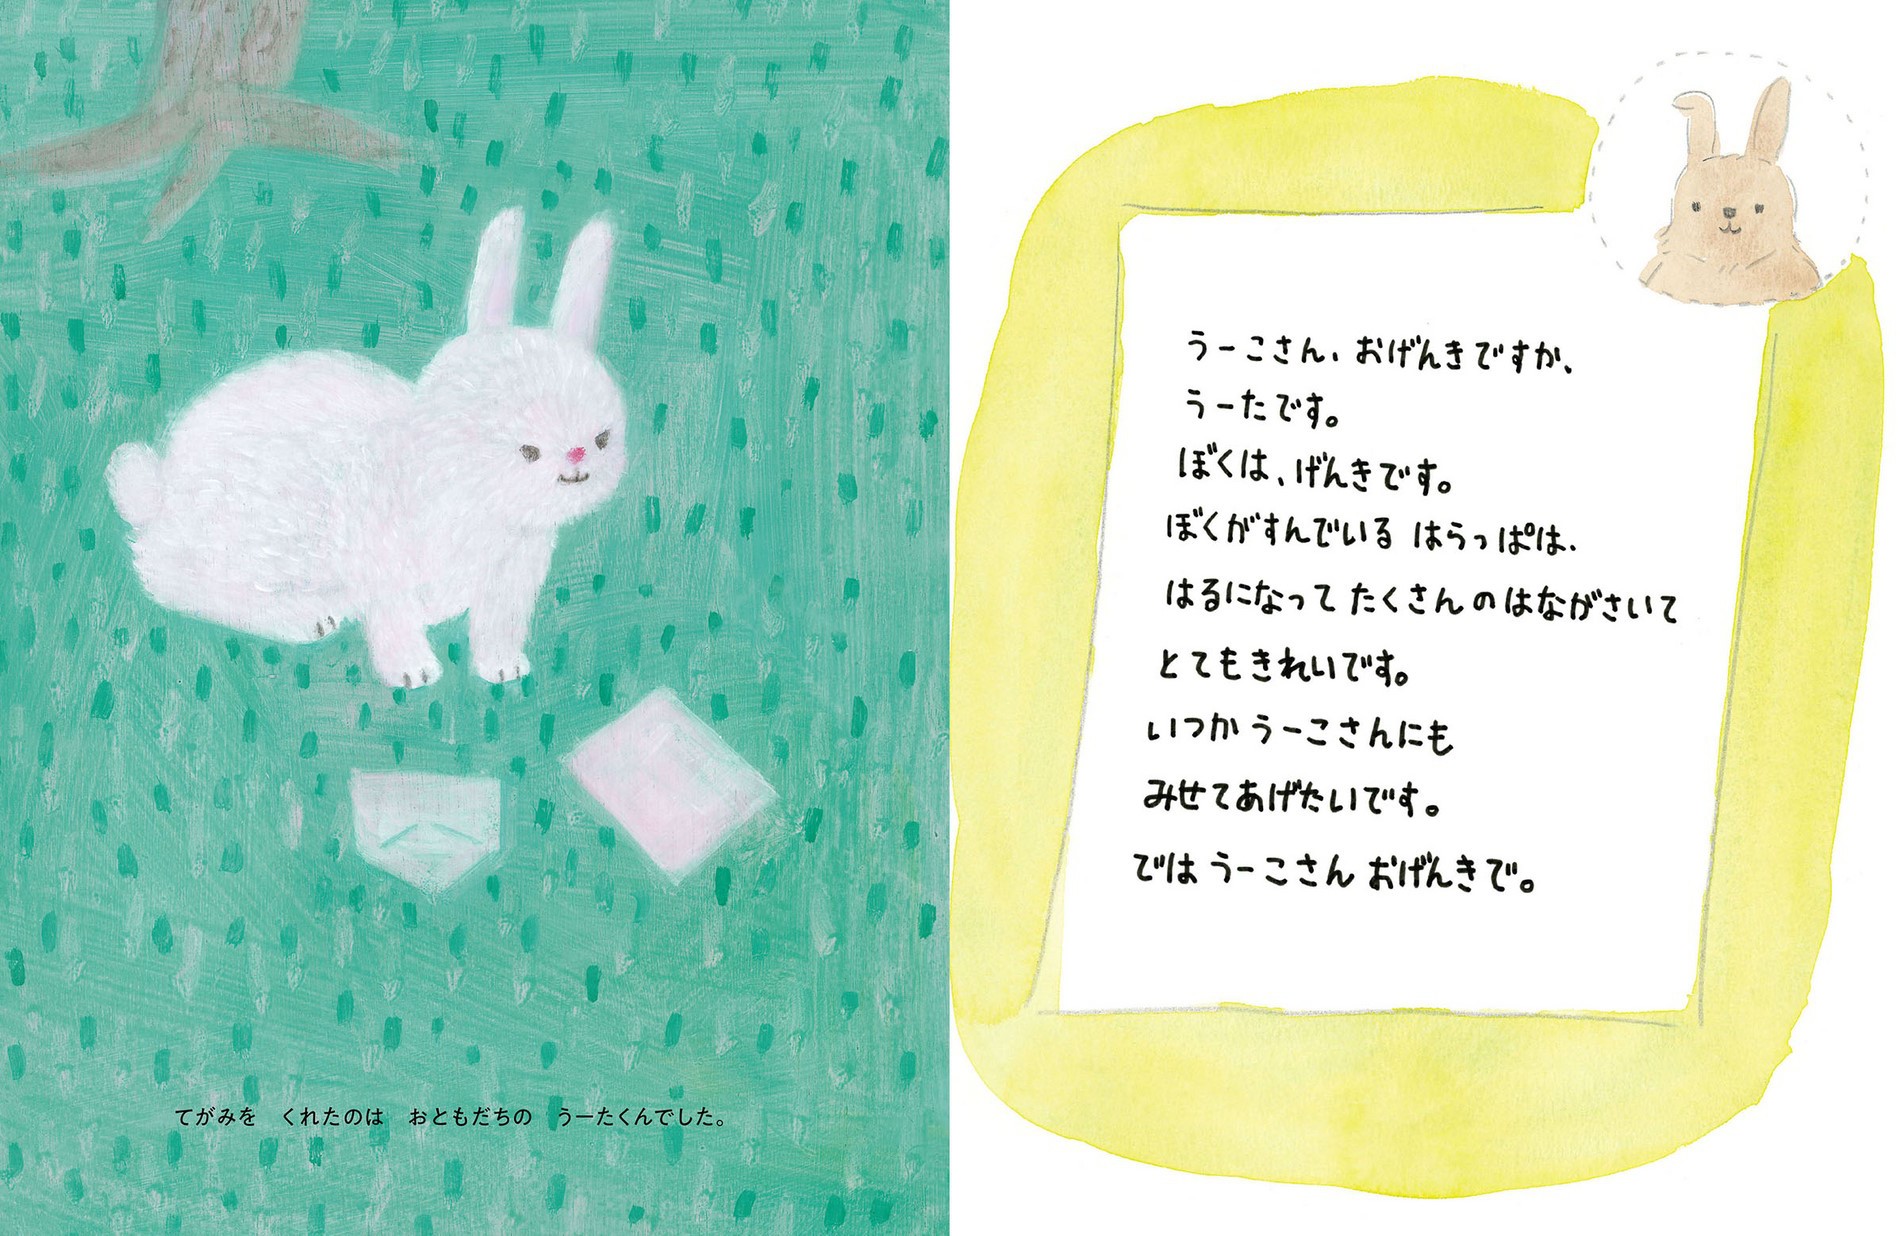 てがみを　くれたのは　おともだちの　うーたくんでした。
うーこさん、おげんきですか、
うーたです。
ぼくは、げんきです。
ぼくがすんでいる はらっぱは、
はるになって たくさんのはながさいて
とてもきれいです。
いつか うーこさんにも
みせてあげたいです。
では うーこさん おげんきで。